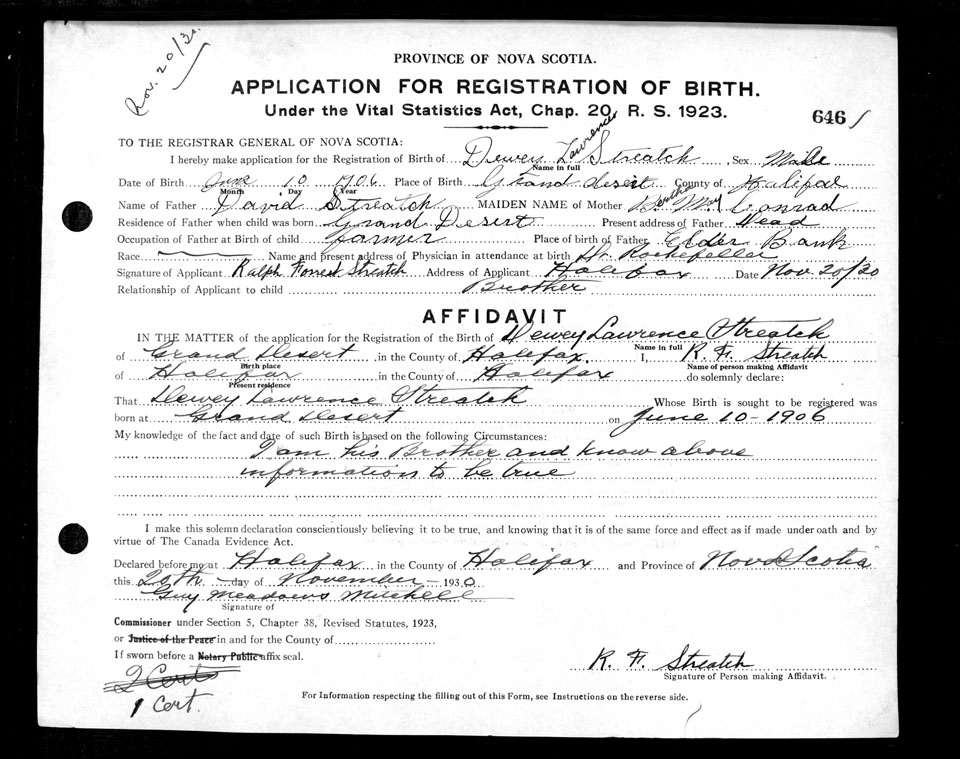 Nov. 20/30.
PROVINCE OF NOVA SCOTIA.
APPLICATION FOR REGISTRATION OF BIRTH.
Under the Vital Statistics Act, Chap. 20, R. S. 1923.
646
TO THE REGISTRAR GENERAL OF NOVA SCOTIA:
I hereby make application for the Registration of Birth of Dewey Lawrence Streatch Sex Male
Name in full
Date of Birth June 10 1906 Place of Birth Grand desert County of Halifax
Month Day Year
Name of Father David Streatch MAIDEN NAME of Mother Bertha May Conrad
Residence of Father when child was born Grand Desert Present address of Father Dead
Occupation of Father at Birth of child farmer Place of birth of Father Elder Bank
Race Name and present address of Physician in attendance at birth Dr. Rockefeller
Signature of Applicant Ralph Forrest Streatch Address of Applicant Halifax Date Nov. 20/30
Relationship of Applicant to child Brother
AFFIDAVIT
IN THE MATTER of the application for the Registration of the Birth of Dewey Lawrence Streatch
Name in full
of Grand Desert in the County of Halifax. I, R. F. Streatch
Birth place Name of person making Affidavit
of Halifax in the County of Halifax do solemnly declare:
Present residence
That Dewey Lawrence Streatch Whose Birth is sought to be registered was
born at Grand Desert on June 10-1906
My knowledge of the fact and date of such Birth is based on the following Circumstances:
I am his Brother and know above
informations to be true
I make this solemn declaration conscientiously believing it to be true, and knowing that it is of the same force and effect as if made under oath and by
virtue of The Canada Evidence Act.
Declared before me at Halifax in the County of Halifax and Province of Nova Scotia
this 20th day of November 1930
Guy Meadows Mitchell
Signature of
Commissioner under Section 5, Chapter 38, Revised Statutes, 1923,
or Justice of the Peace in and for the County of
If sworn before a Notary Public affix seal.
R. F. Streatch
Signature of Person making Affidavit.
2 Cert
1 Cert.
For Information respecting the filling out of this Form, see Instructions on the reverse side.